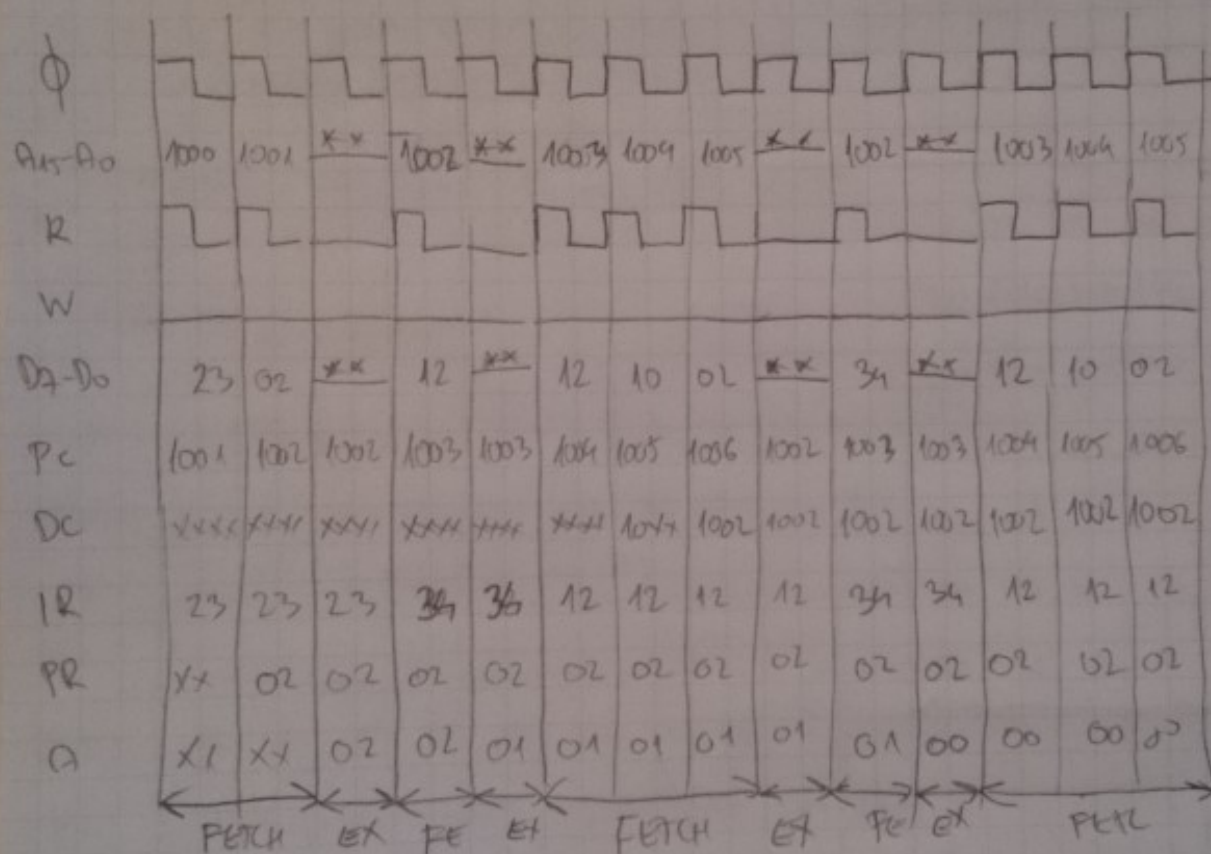 ϕ
A15-A0 1000 1001 ** 1002 ** 1003 1004 1005 ** 1002 ** 1003 1004 1005
R
W
D7-D0 23 02 ** 12 ** 12 10 02 ** 34 ** 12 10 02
PC 1001 1002 1002 1003 1003 1004 1005 1006 1002 1003 1003 1004 1005 1006
DC XXXX XXXX XXXX XXXX XXXX XXXX 10XX 1002 1002 1002 1002 1002 1002 1002
IR 23 23 23 34 12 12 12 12 34 34 12 12 12
PR XX 02 02 02 02 02 02 02 02 02 02 02 02 02
A XX XX 02 02 01 01 01 01 01 01 00 00 00 00
FETCH EX FE EX FETCH EX FE EX FETC